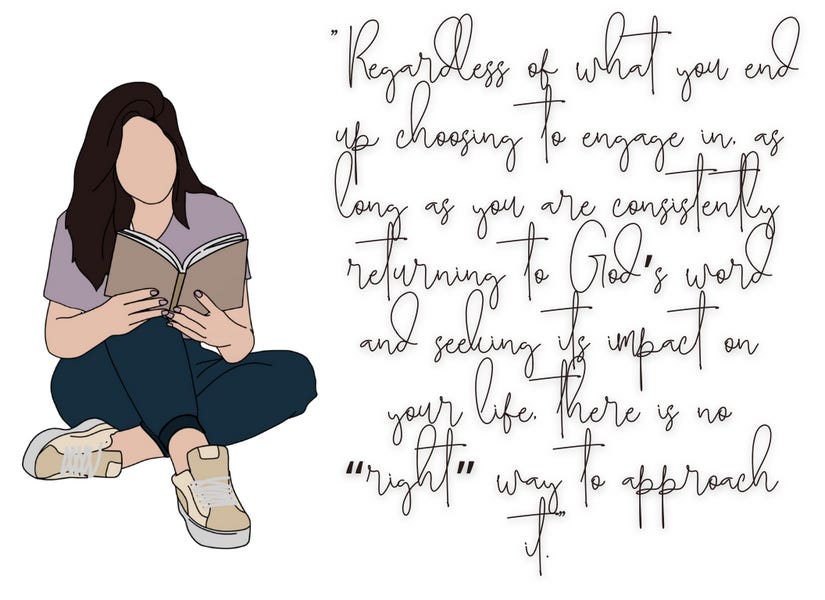 "Regardless of what you end
up choosing to engage in, as
long as you are consistently
returning to God's word
and seeking its impact on
your life, there is no
“right” way to approach
it."